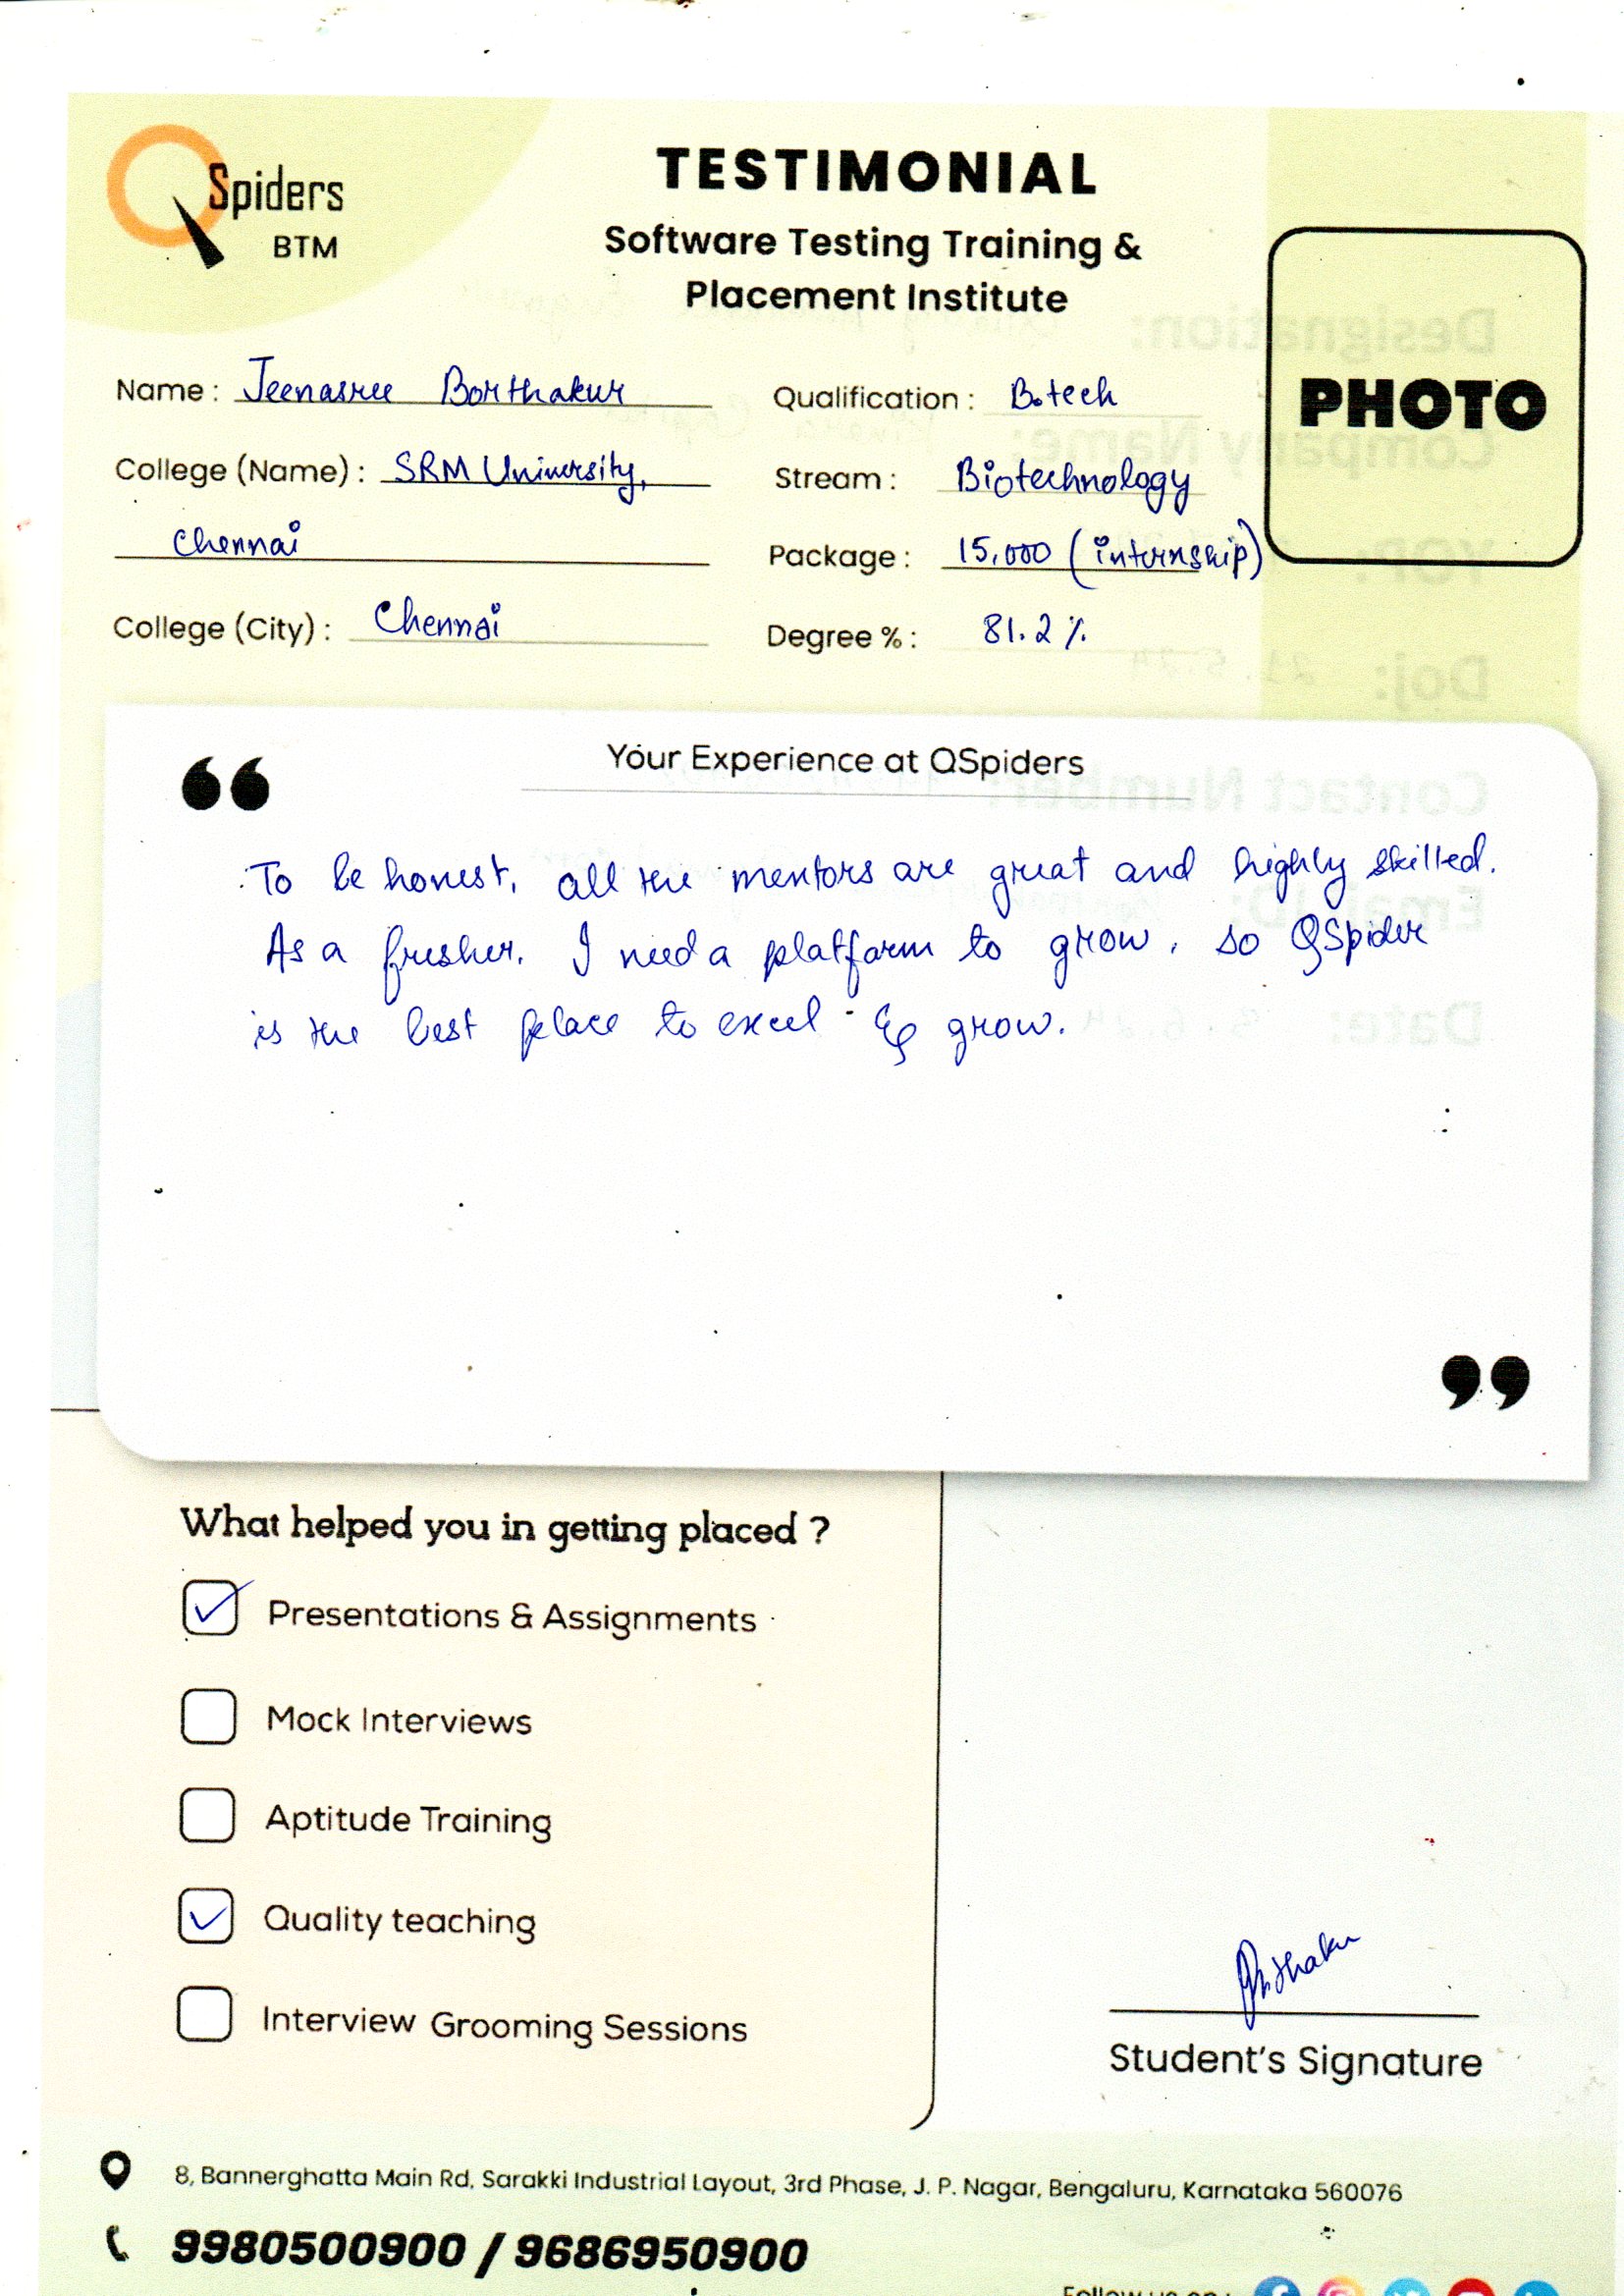 QSpiders
BTM
TESTIMONIAL
Software Testing Training &
Placement Institute
PHOTO
Name : Jeenasree Borthakur
Qualification : B.tech
College (Name) : SRM University,
Chennai
Stream : Biotechnology
Package : 15,000 (internship)
College (City) : Chennai
Degree % : 81.2 %
Your Experience at QSpiders
To be honest, all the mentors are great and highly skilled.
As a fresher, I need a platform to grow, so QSpider
is the best place to excel & grow.
What helped you in getting placed ?
Presentations & Assignments
Mock Interviews
Aptitude Training
Quality teaching
Interview Grooming Sessions
Student's Signature
8, Bannerghatta Main Rd, Sarakki Industrial Layout, 3rd Phase, J. P. Nagar, Bengaluru, Karnataka 560076
9980500900 / 9686950900
Follow us on :